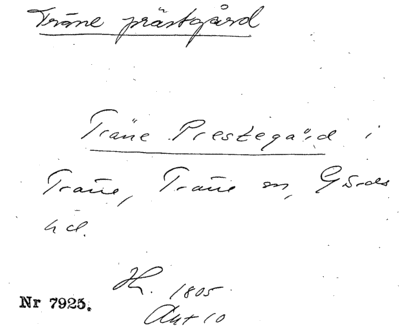 Träne prästgård
Träne Prestegård i
Träne, Träne sn, Gärds
hd.
1805
Akt 10
Nr 7925.